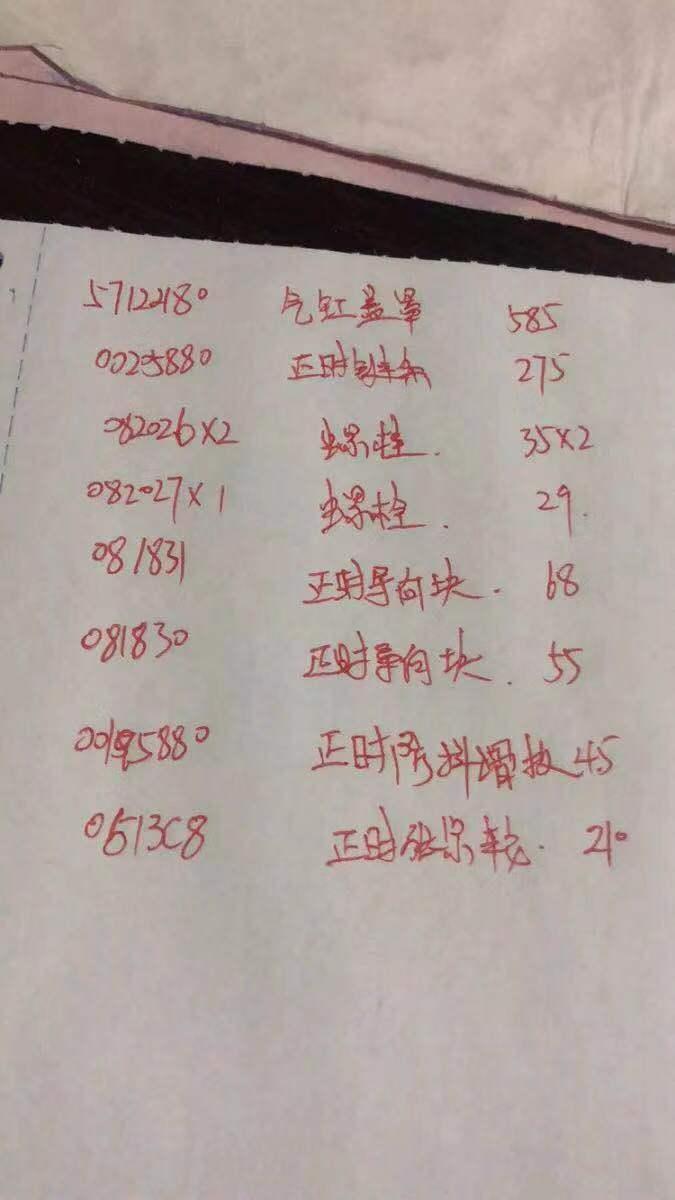 5712480 气缸盖罩 585
0025880 正时链条 275
082026×2 螺栓. 35×2
082027×1 螺栓. 29.
081831 正时导向块. 68
081830 正时导向块. 55
正时防抖滑板 45
0513C8 正时张紧轮. 210